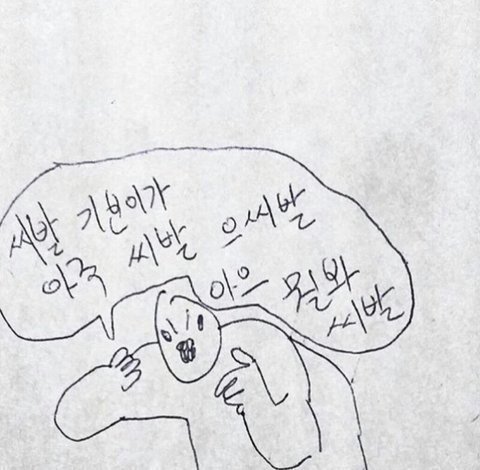 씨발 기분이가
아주 씨발 으씨발
아으 뭘봐
씨발